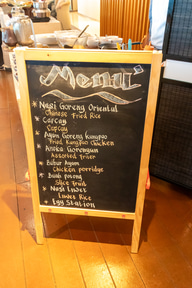 Menu
* Nasi Goreng Oriental
Chinese Fried Rice
* CapCay
CapCay
* Ayam Goreng Kungpao
Fried KungPao Chicken
* Aneka Gorengan
Assorted Fried
* Bubur Ayam
Chicken porridge
* Buah potong
Slice Fruit
* Nasi Liwet
Liwet Rice
* Egg Station